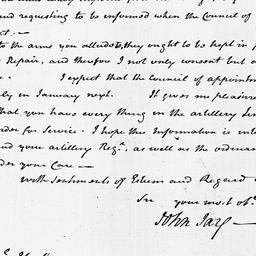 and requesting to be informed when the Council of
to the arms you allude to, they ought to be kept in
Repair, and therefore I not only consent but
I expect that the Council of appointm
ly in January next. It gives me pleasure
that you have every thing in the artillery line
order for Service. I hope this Information is
and your artillery Regt. as well as the ordnan
der your Care —
with Sentiments of Esteem and Regard
Sir
your most obt
John Jay —